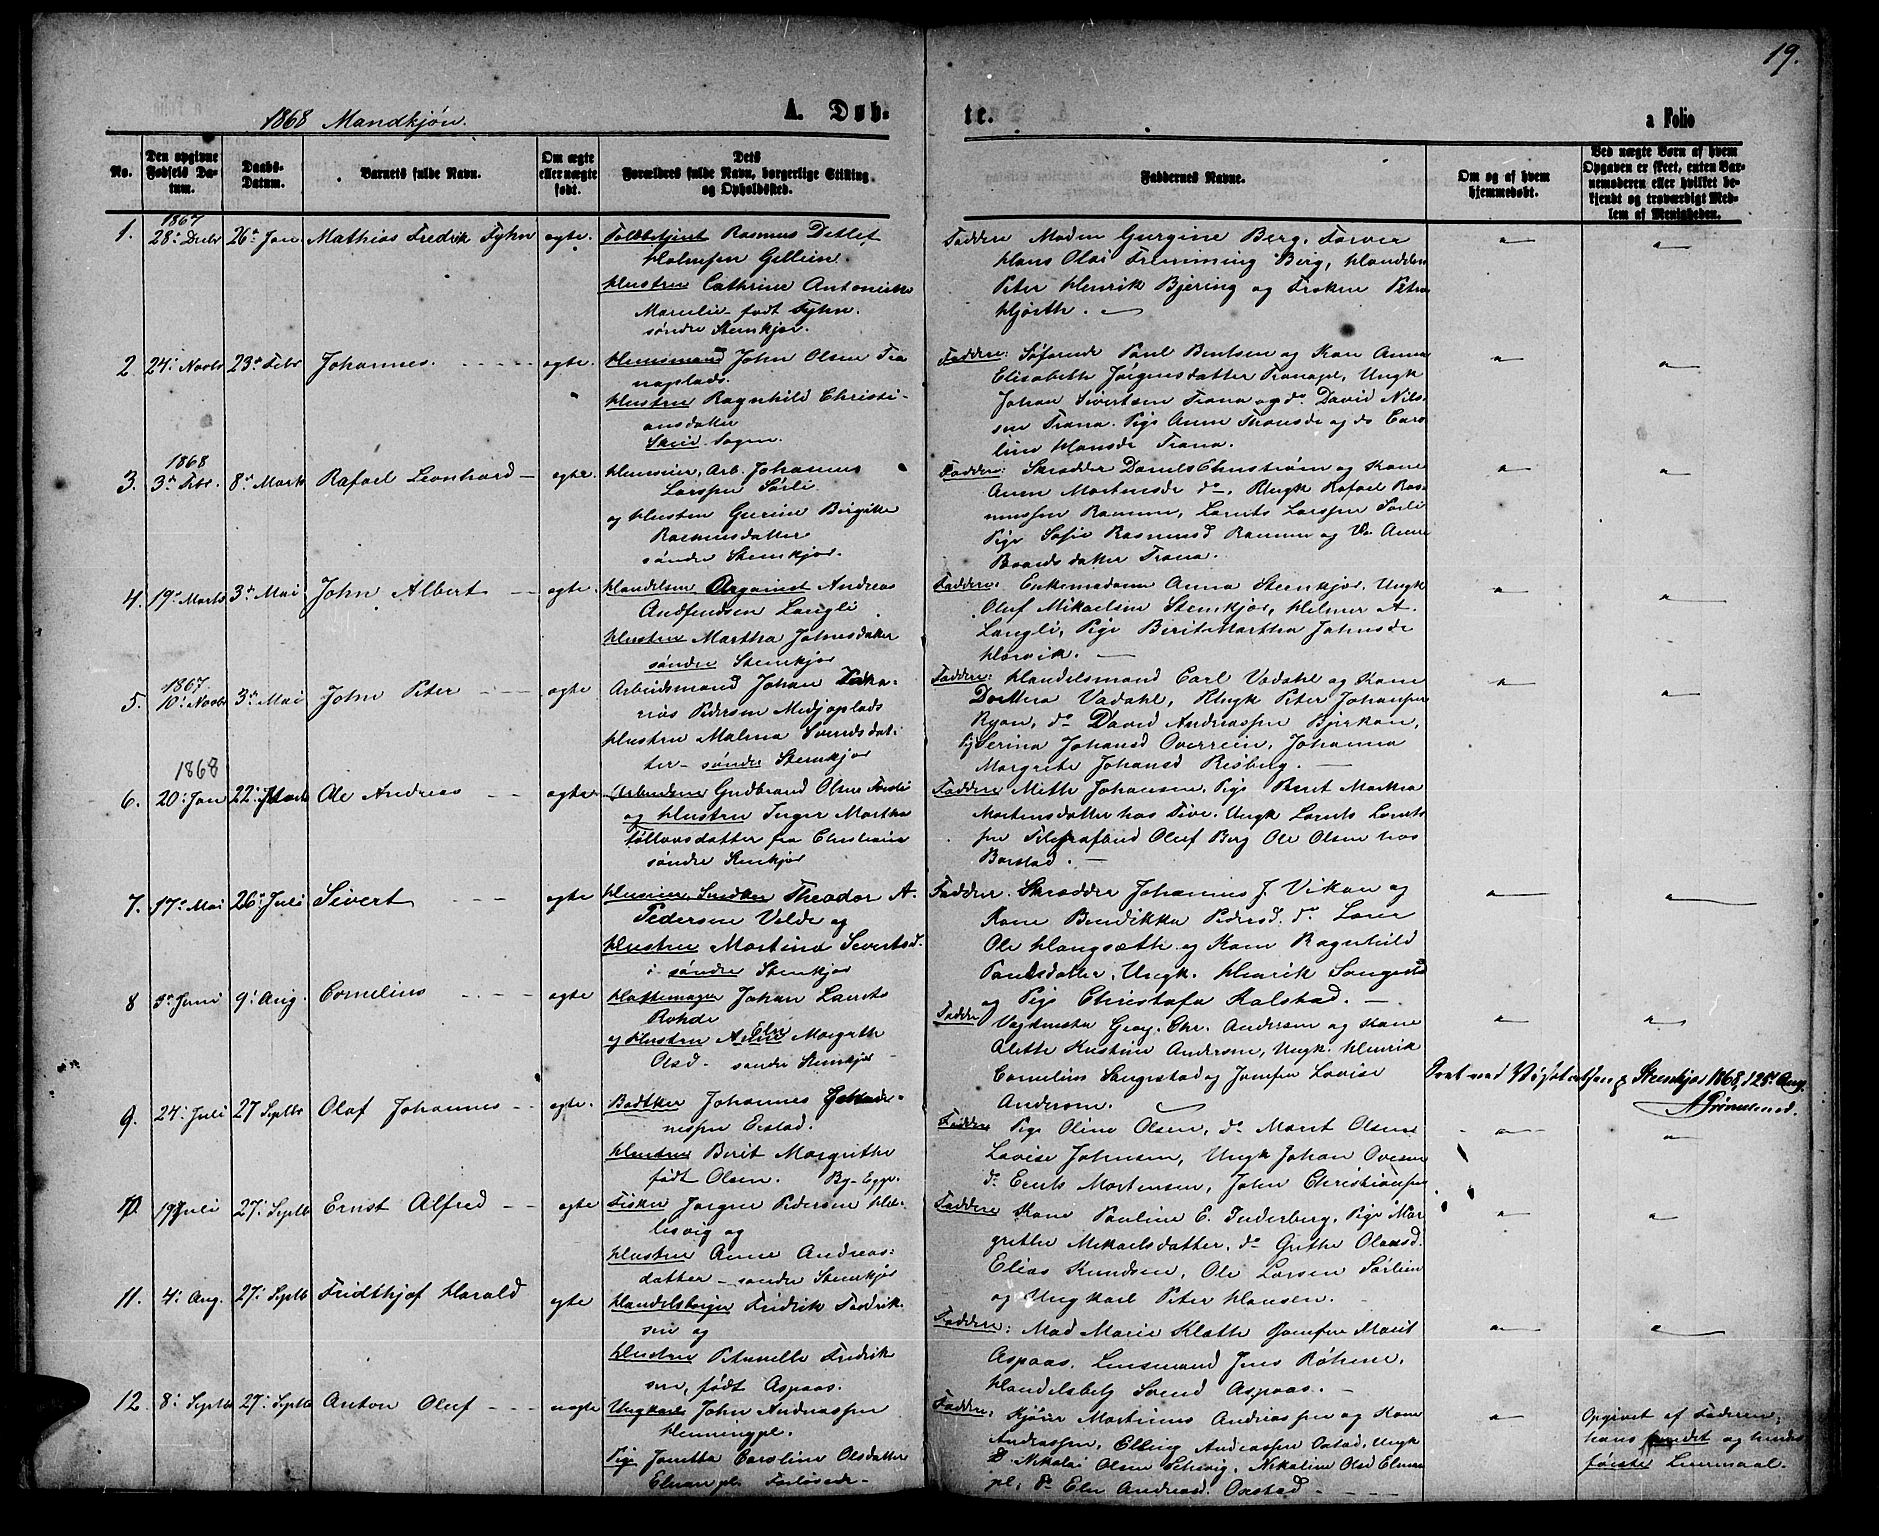 19.
1868 Mandkjøn.
A. Døb-
te.
a Folio
No.
Den opgivne Fødsels Datum.
Daabs-Datum.
Barnets fulde Navn.
Om ægte eller uægte født.
Dets Forældres fulde Navn, borgerlige Stilling og Opholdssted.
Faddernes Navne.
Om og af hvem hjemmedøbt.
Ved uægte Børn af hvem Opgaven er skeet, enten Barnemoderen eller hvilket bekjendt og troværdigt Medlem af Menigheden.
1867
1. 28. Decbr 26. Jan Mathias Fredrik Fyhn ægte. Toldbetjent Rasmus Detlef
Holmsen Gellein
Hustru Cathrine Antonette
født Fyhn.
søndre Steenkjær.
Faddere Madm Gurgine Berg, Farver
Hans Olai Flemming Berg, Handelsm
Peter Henrik Bjering og Frøken Petra
Hjorth.
2 24. Novbr 23. Febr Johannes. ægte. Husmand John Olsen Tra
naplads.
Hustru Ragnhild Christi-
ansdatter
Skei Sogn.
Faddere: Søfarende Paul Bentsen og Kone Anna
Elisabeth Jørgensdatter Ranapl, Ungk
Johan Sivertsen Trana og do David Nils-
sen Trana. Pige Anne do og do Caro
line Hansd Trana.
1868
3. 3. Febr. 8. Marts Rafael Leonhard ægte. Huseier, Arb. Johannes
Larssen Sørli
og Hustru Gurine Birgitte
Rasmusdatter
søndre Steenkjær.
Faddere: Skrædder Daniel Christrøm og Kone
Anen Mortensd do, Ungk Rafael Ras-
mussen Ramm, Laurits Larssen Sørli
Pige Sofie Rasmusd Ramm og do Anne
Baardsdatter Trana.
4. 19. Marts 3. Mai John Albert ægte. Handelsm Organist Andreas
Andfindsen Langli
Hustru Martha Johnsdatter
søndre Steenkjær
Faddere: Enkemadame Anna Steenkjær, Ungk
Oluf Mikaelsen Steenkjær, Helmer A.
Langli, Pige Berit Martha Johnsd
1867.
5. 10. Novbr 3. Mai John Peter ægte Arbeidsmand Johan Zaka-
rias Pedersen Medjaplads
Hustru Malena Svendsdat-
ter - søndre Steenkjær
Faddere: Handelsmand Carl Vadahl og Kone
Dorthea Vadahl, Ungk Peter Johansen
Ryan, do David Andreassen Bjerkan,
Pig Serina Johansd Overrein, Johanna
Margrete Johansd Risberg.
1868
6. 20. Jan 22. Ole Andreas ægte Arbeidsm Gudbrand Olsen
og Hustru Inger Martha
fra Christiania
søndre Stenkjær
Faddere Mette Johansen, Pige Berit Martha
Mortensdatter hos Five. Ungk Laurits Laurits
sen Telegrafbud Oluf Berg Ole Olsen hos
Barstad.
7. 17. Mai 26. Juli Sivert ægte Huseier, Snedker Theodor A.
Pedersen Velde og
Hustru Martina Sivertsd.
i søndre Steenkjær
Faddere. Skrædder Johannes J. Vikan og
Kone Bendikka Pedersd. do
Ole Haugsæth og Kone Ragnhild
Paulsdatter, Ungk. Henrik Sangestad
og Pige Christofa Kalstad.
8 5. Juni 9. Aug. Cornelius ægte Hattemager Johan Laurits
Rohde
og Hustru Elen Margrethe
Olsd. søndre Steenkjær
Faddere Georg. Chr. Andersen og Kone
Alette Kristine Andersen, Ungk. Henrik
Cornelius Sangestad og Jomfru Lovise
Andersen.
Steenkjær 1868, d 25. Aug.
9. 24. Juli 27 Septbr Olaf Johannes ægte. Bødtker Johannes Johan-
nessen Eistad.
Hustru Berit Margrethe
født Olsen. By - Egge.
Faddere Pige Oline Olsen, do Marit Olsen
Lovise Johnsen, Ungk Johan Ovesen
do Mortensen, John Christiansen
10. 19 Juli 27. Septb Ernst Alfred ægte Fisker Jørgen Pedersen Hel-
lesvig og
Hustru Anne Andreas-
datter - søndre Steenkjær
Faddere Kone Pauline E. Inderberg, Pige Mar-
grethe Mikaelsdatter, do Grethe Olausd.
Elias Knudsen, Ole Larsen Sørlien
og Ungkarl Peter Hansen.
11. 4. Aug. 27. Septb Fridthjof Harald ægte Handelsborger Fridrik Fredrik-
sen og
Hustru Petronelle Fredrik-
sen, født Aspaas.
Faddere: Mad Marie Klette Jomfru Marit
Aspaas. Lensmand Jens Røhme,
Handelsbetj Svend Aspaas.
12. 8. Septb 27. Septb Anton Oluf uægte Ungkarl John Andreassen
Henningpl.
Pige Jonetta Caroline Olsdatter
Faddere. Kjører Martinus Andreassen og Kone
Andreassen, Elling Andreassen Oxstad, Ungk
Nikolai Olsen Selvig, Nikoline Olsd
pl, do Elen Andreasd. Oxstad
Opgivet af Faderen,
hans andet og hendes
første Leiermaal.